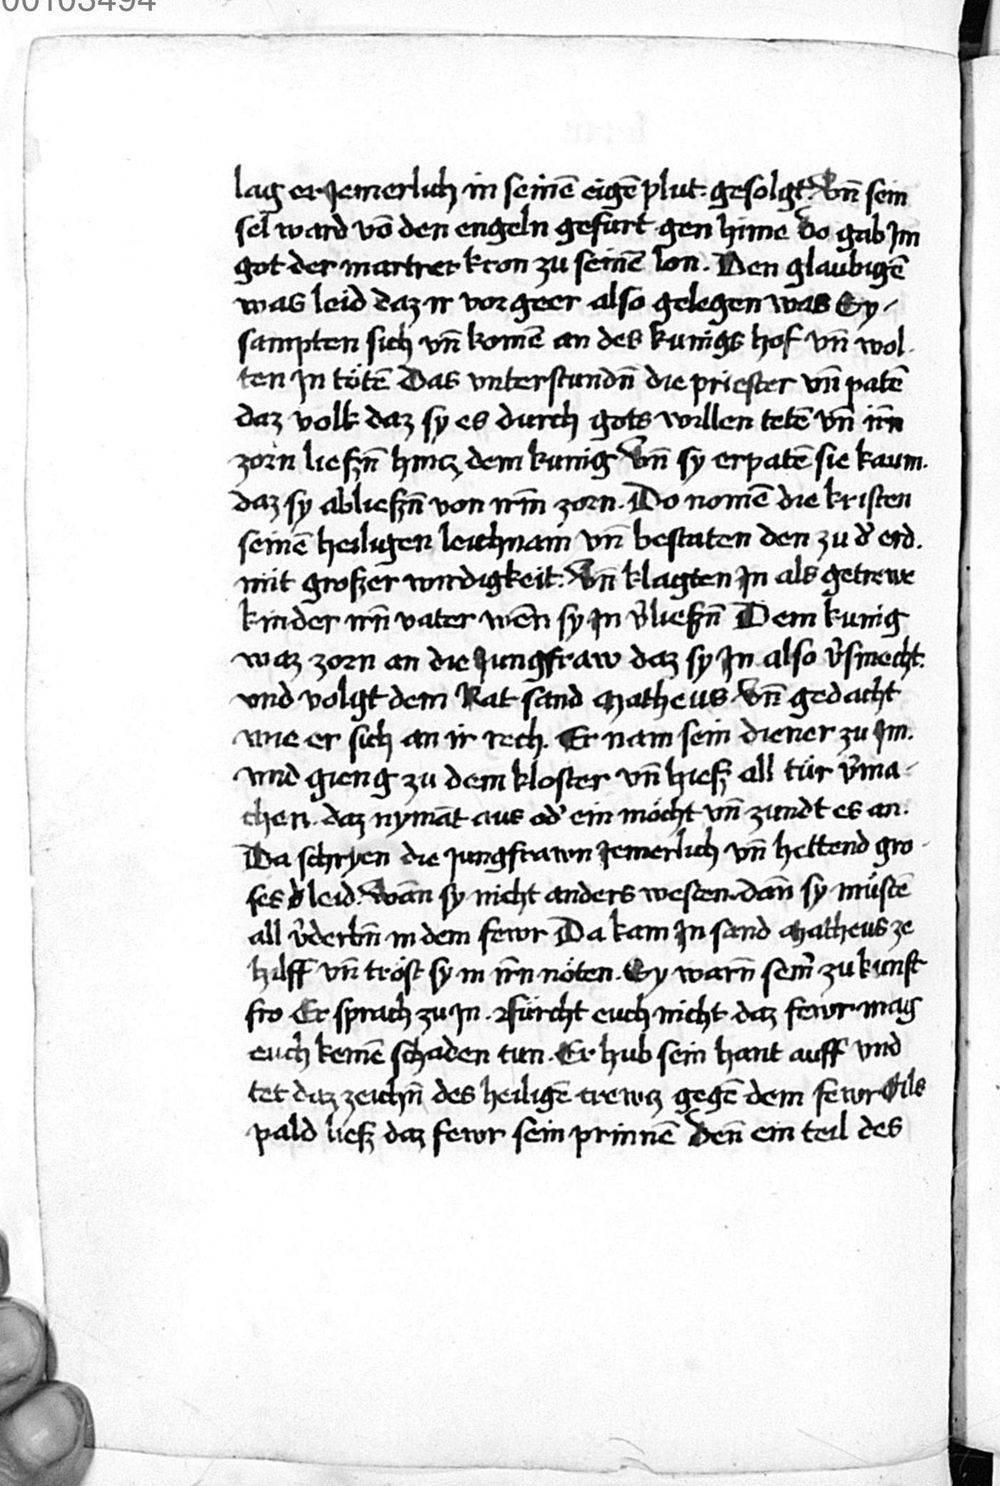 00103494
lag er Jemerlich in seinē eigē plut gesolgt. Vn̄ sein
sel ward vō den engeln gefurt gen hime do gab Jm
got der martrer kron zu seinē lon. Den glaubigē
was leid daz ir vorgeer also gelegen was Sy
sampten sich vn̄ komē an des kunigs hof vn̄ wol
ten Jn tötē Das vnterstundn̄ die priester vn̄ patē
daz volk daz sy es durch gots willen tetē vn̄ irn̄
zorn lieszn̄ hincz dem kunig Vn̄ sy erpatē sie kaum.
daz sy ablieszn̄ von irm̄ zorn. Do nomē die kristen
seinē heiligen leichnam vn̄ bestaten den zu d' erd.
mit groszer wirdigkeit. Vn̄ klagten Jn als getrewe
kinder irn̄ vater wēn sy Jn v'lieszn̄ Dem kunig
waz zorn an die Jungfraw daz sy Jn also v'smecht.
vnd volgt dem Rat sand Matheus Vn̄ gedacht
wie er sich an ir rech. Er nam sein diener zu Jm.
vnd gieng zu dem kloster vn̄ hiesz all tür v'ma
chen. daz nymāt aus od' ein möcht vn̄ zundt es an.
Da schryen die jungfrawn Jemerlich vn̄ hettend gro
ses leid. Wān sy nicht anders westen dān sy müstē
all v'derbn̄ in dem fewr Da kam Jn sand Matheus ze
hilff vn̄ tröst sy in irn̄ nöten. Sy warn̄ sein' zukunft
fro Er sprach zu Jn. fürcht euch nicht daz fewr mag
euch keinē schaden tun. Er hub sein hant auff vnd
tet daz zeichn̄ des heiligē crewcz gegē dem fewr Als
pald liesz daz fewr sein prinnē Den̄ ein teil des